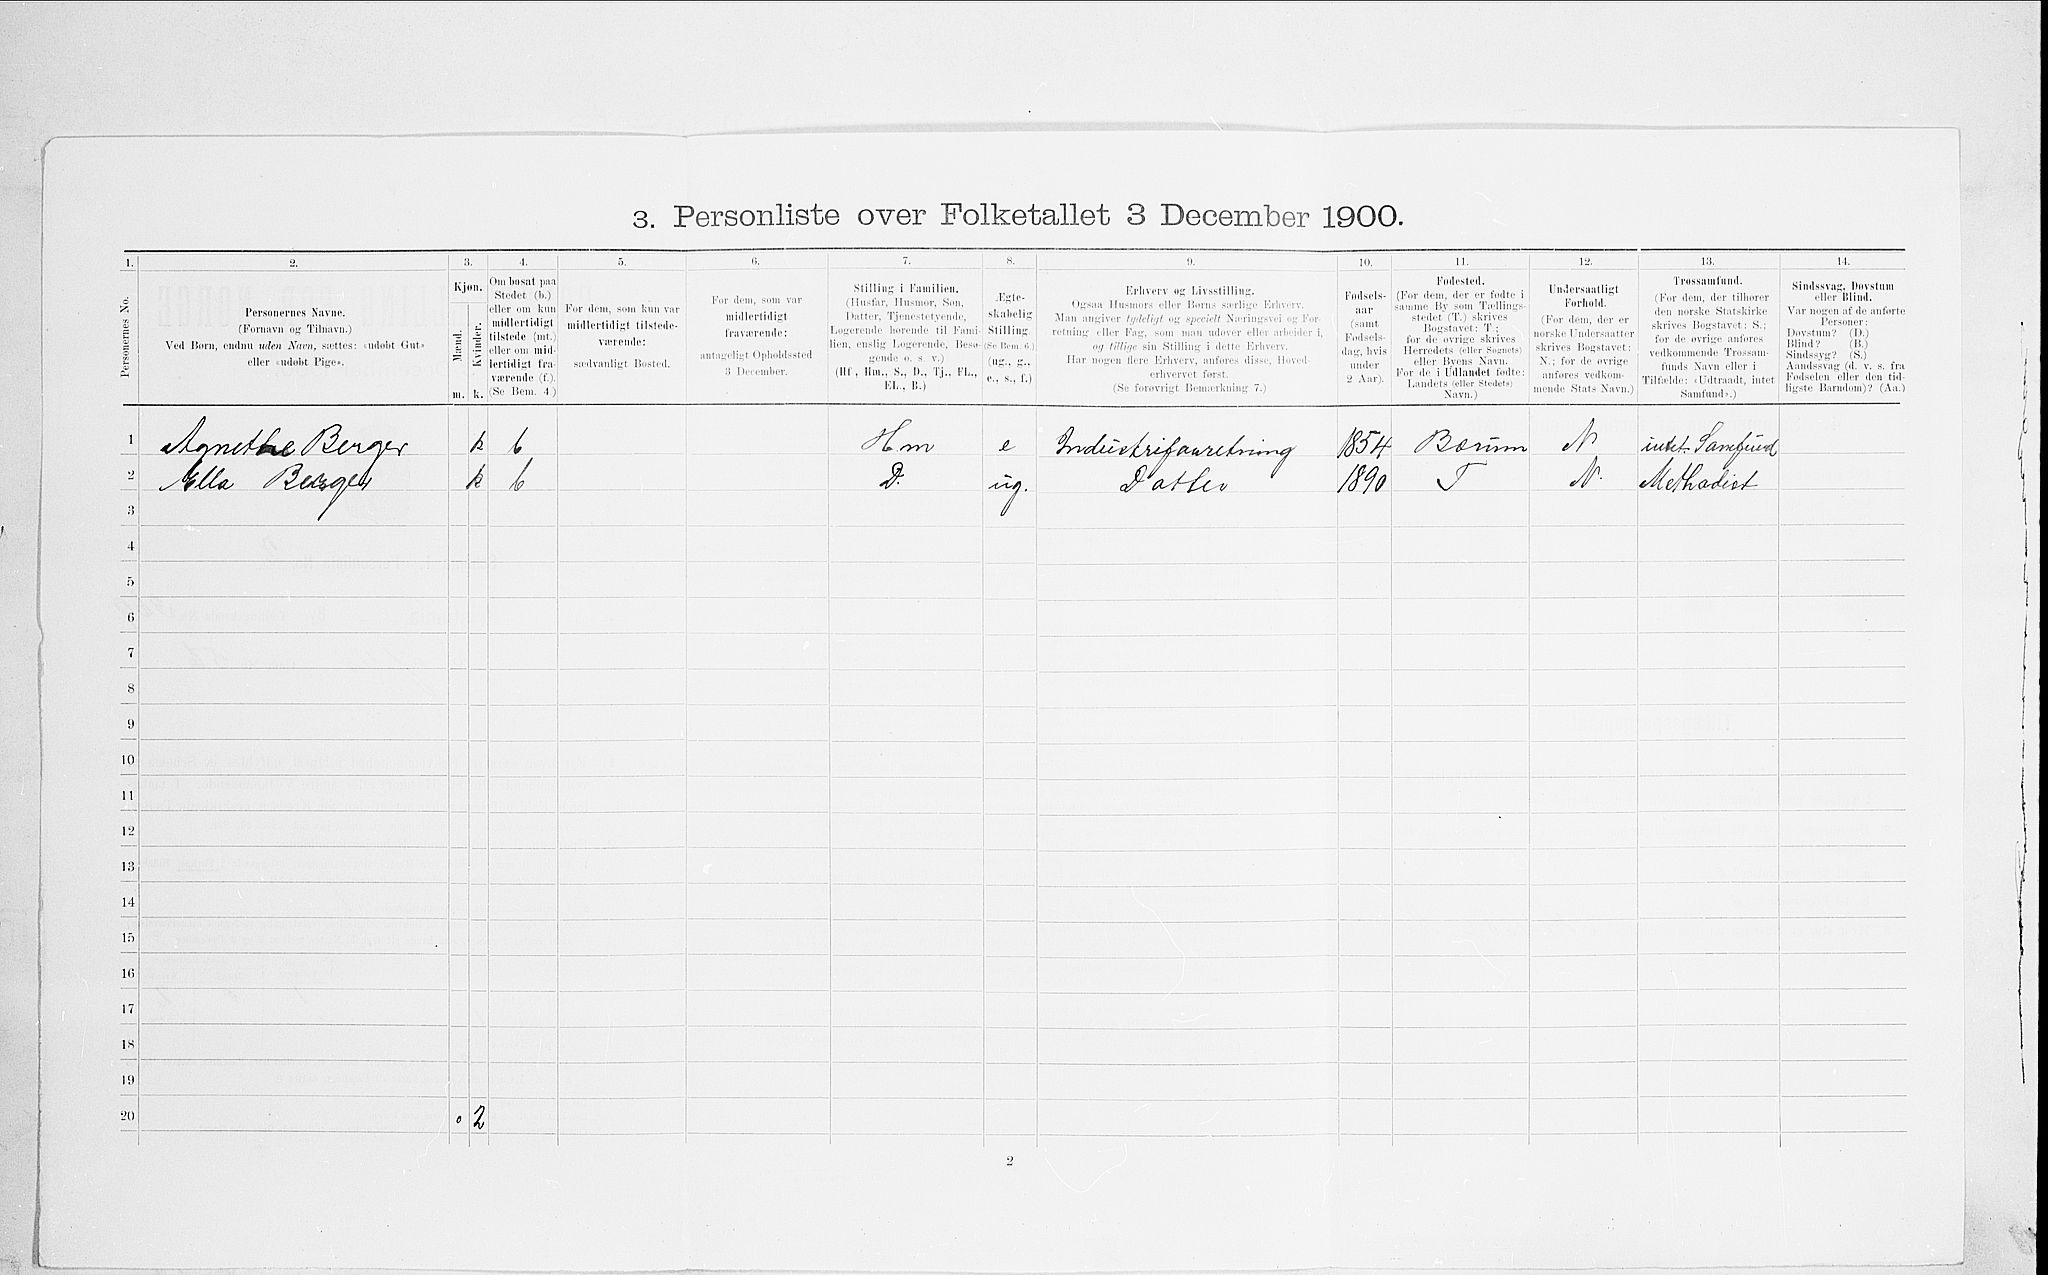 3. Personliste over Folketallet 3 December 1900.
1. 2. 3. 4. 5. 6. 7. 8. 9. 10. 11. 12. 13. 14.
Personernes No.
Personernes Navne.
(Fornavn og Tilnavn.)
Ved Børn, endnu uden Navn, sættes: «udøbt Gut»
eller «udøbt Pige».
Kjøn.
Mænd.
Kvinder.
m. k.
Om bosat paa
Stedet (b.)
eller om kun
midlertidigt
tilstede (mt.)
eller om mid-
lertidigt fra-
værende (f.).
(Se Bem. 4.)
For dem, som kun var
midlertidigt tilstede-
værende:
sædvanligt Bosted.
For dem, som var
midlertidigt
fraværende:
antageligt Opholdssted
3 December.
Stilling i Familien.
(Husfar, Husmor, Søn,
Datter, Tjenestetyende,
Logerende hørende til Fami-
lien, enslig Logerende, Besø-
gende o. s. v.)
(Hf., Hm., S., D., Tj., FL.,
EL., B.)
Ægte-
skabelig
Stilling.
(Se Bem. 6.)
(ug., g.,
e., s., f.)
Erhverv og Livsstilling.
Ogsaa Husmors eller Børns særlige Erhverv.
Man angiver tydeligt og specielt Næringsvei og For-
retning eller Fag, som man udøver eller arbeider i,
og tillige sin Stilling i dette Erhverv.
Har nogen flere Erhverv, anføres disse, Hoved-
erhvervet først.
(Se forøvrigt Bemærkning 7.)
Fødsels-
aar
(samt
Fødsels-
dag, hvis
under
2 Aar).
Fødested.
(For dem, der er fødte i
samme By som Tællings-
stedet (T.) skrives
Bogstavet: T.;
for de øvrige skrives
Herredets (eller Sognets)
eller Byens Navn.
For de i Udlandet fødte:
Landets (eller Stedets)
Navn.)
Undersaatligt
Forhold.
(For dem, der er
norske Undersaatter
skrives Bogstavet:
N.; for de øvrige
anføres vedkom-
mende Stats Navn.)
Trossamfund.
(For dem, der tilhører
den norske Statskirke
skrives Bogstavet: S.;
for de øvrige anføres
vedkommende Trossam-
funds Navn eller i
Tilfælde: «Udtraadt, intet
Samfund».)
Sindssvag, Døvstum
eller Blind.
Var nogen af de anførte
Personer:
Døvstum? (D.)
Blind? (B.)
Sindssyg? (S.)
Aandssvag (d. v. s. fra
Fødselen eller den tid-
ligste Barndom)? (Aa.)
1 Agnethe Berger k b Hm e Industriforretning 1854 Bærum N intet Samfund
2 Ella Berger k b D. ug. Datter 1890 T N. Methodist
3
4
5
6
7
8
9
10
11
12
13
14
15
16
17
18
19
20 0 2
2